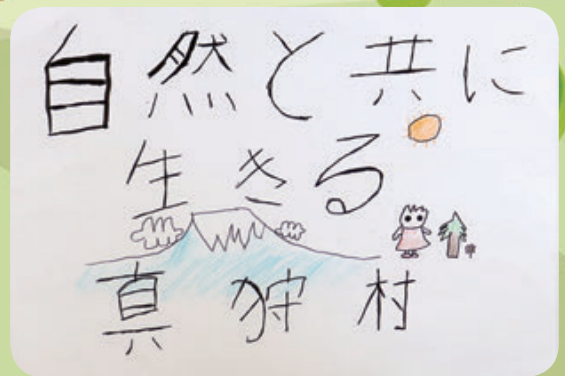 自然と共に
生きる
真狩村